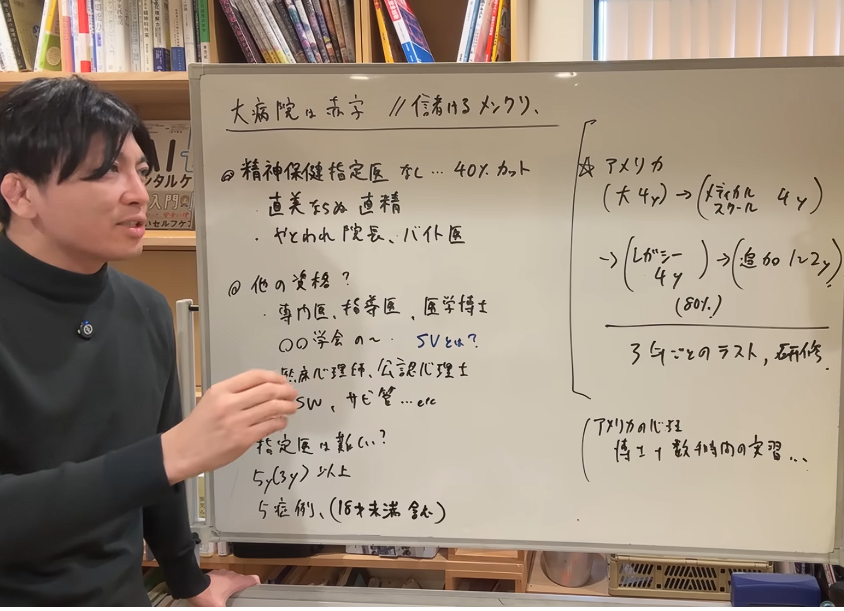 大病院は赤字 // 信者けるメンクリ、
@ 精神保健指定医 なし… 40% カット
・直美ならぬ 直精
・やとわれ院長、バイト医
@ 他の資格?
・専門医、指導医、医学博士
○○学会の〜. SVとは?
臨床心理師、公認心理士
SW、サビ管…etc
指定医は難しい?
5y(3y)以上
5症例、(18才未満含む)
☆ アメリカ
(大4y)→(メディカルスクール 4y)
→(レガシー 4y)→(追加 1~2y)
(80%)
3年ごとのテスト, 研修.
アメリカの心理
博士+数千時間の実習...
AI
ンタルケ
入門
セルフケア